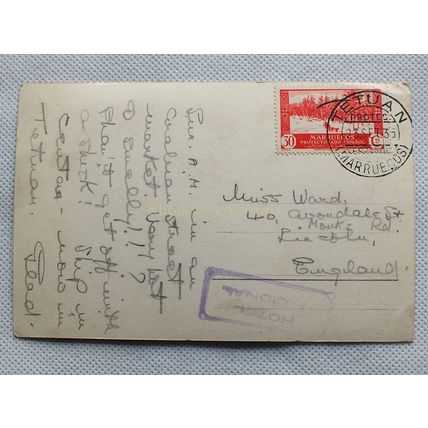 Sun. A.M. in an
Arabian street
market Very hot
& smelly!!! ?
Phai't get off with
a shiek! Ship in
Ceuta - now in
Tetuan. Reed.
30 MARRUECOS Cs
PROTECTORADO ESPAÑOL
TETUAN
(PROTEC.
SEP 35
(MARRUECOS)
Miss Ward,
40, Avondale St
Monks Rd.
Lincoln,
England.
HOTEL
CIONAL